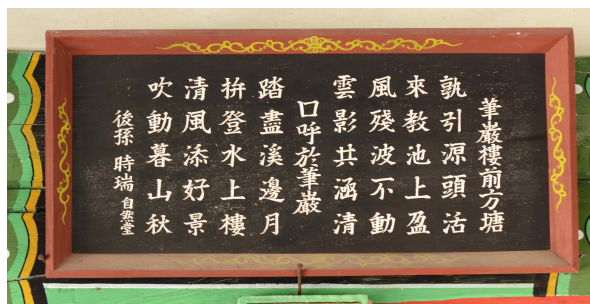 華巖樓前方塘
孰引源頭活
來敎池上盈
風殘波不動
雲影共涵清
口呼於華巖
踏盡溪邊月
拚登水上樓
清風添好景
吹動暮山秋
後孫 時瑞 自然堂